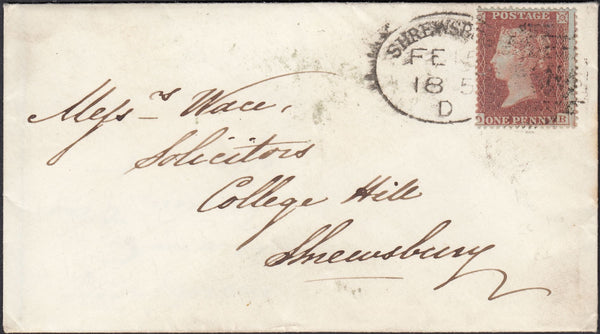 SHREWSB
FE
18 5
D
POSTAGE
ONE PENNY
B
Mess.rs Wace,
Solicitors
College Hill
Shrewsbury